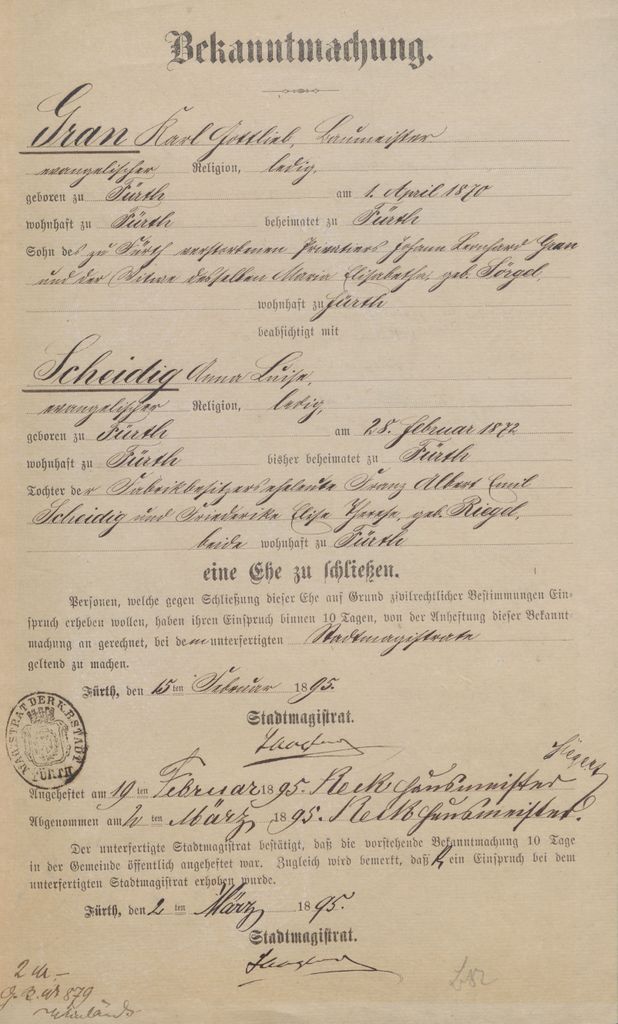 Bekanntmachung.
Gran Karl Gottlieb, Baumeister
evangelischer Religion, ledig,
geboren zu Fürth am 1. April 1870
wohnhaft zu Fürth beheimatet zu Fürth
Sohn des zu Fürth verstorbenen Privatiers Johann Leonhard Gran
und der Witwe desselben Maria Elisabetha, geb. Sörgel,
wohnhaft zu Fürth
beabsichtigt mit
Scheidig Anna Luise,
evangelischer Religion, ledig,
geboren zu Fürth am 28. Februar 1872
wohnhaft zu Fürth bisher beheimatet zu Fürth
Tochter der Fabrikbesitzerseheleute Franz Albert Emil
Scheidig und Friederike Elise Therese, geb. Riegel,
beide wohnhaft zu Fürth
eine Ehe zu schließen.
Personen, welche gegen Schließung dieser Ehe auf Grund zivilrechtlicher Bestimmungen Ein-
spruch erheben wollen, haben ihren Einspruch binnen 10 Tagen, von der Anheftung dieser Bekannt-
machung an gerechnet, bei dem unterfertigten Stadtmagistrate
geltend zu machen.
Fürth, den 15ten Februar 1895.
Stadtmagistrat.
MAGISTRAT DER K.B. STADT FÜRTH
Angeheftet am 19ten Februar 1895. Keck Hausmeister
Abgenommen am 2ten März 1895. Keck Hausmeister.
Der unterfertigte Stadtmagistrat bestätigt, daß die vorstehende Bekanntmachung 10 Tage
in der Gemeinde öffentlich angeheftet war. Zugleich wird bemerkt, daß kein Einspruch bei dem
unterfertigten Stadtmagistrat erhoben wurde.
Fürth, den 2ten März 1895.
Stadtmagistrat.
2 M. –
879